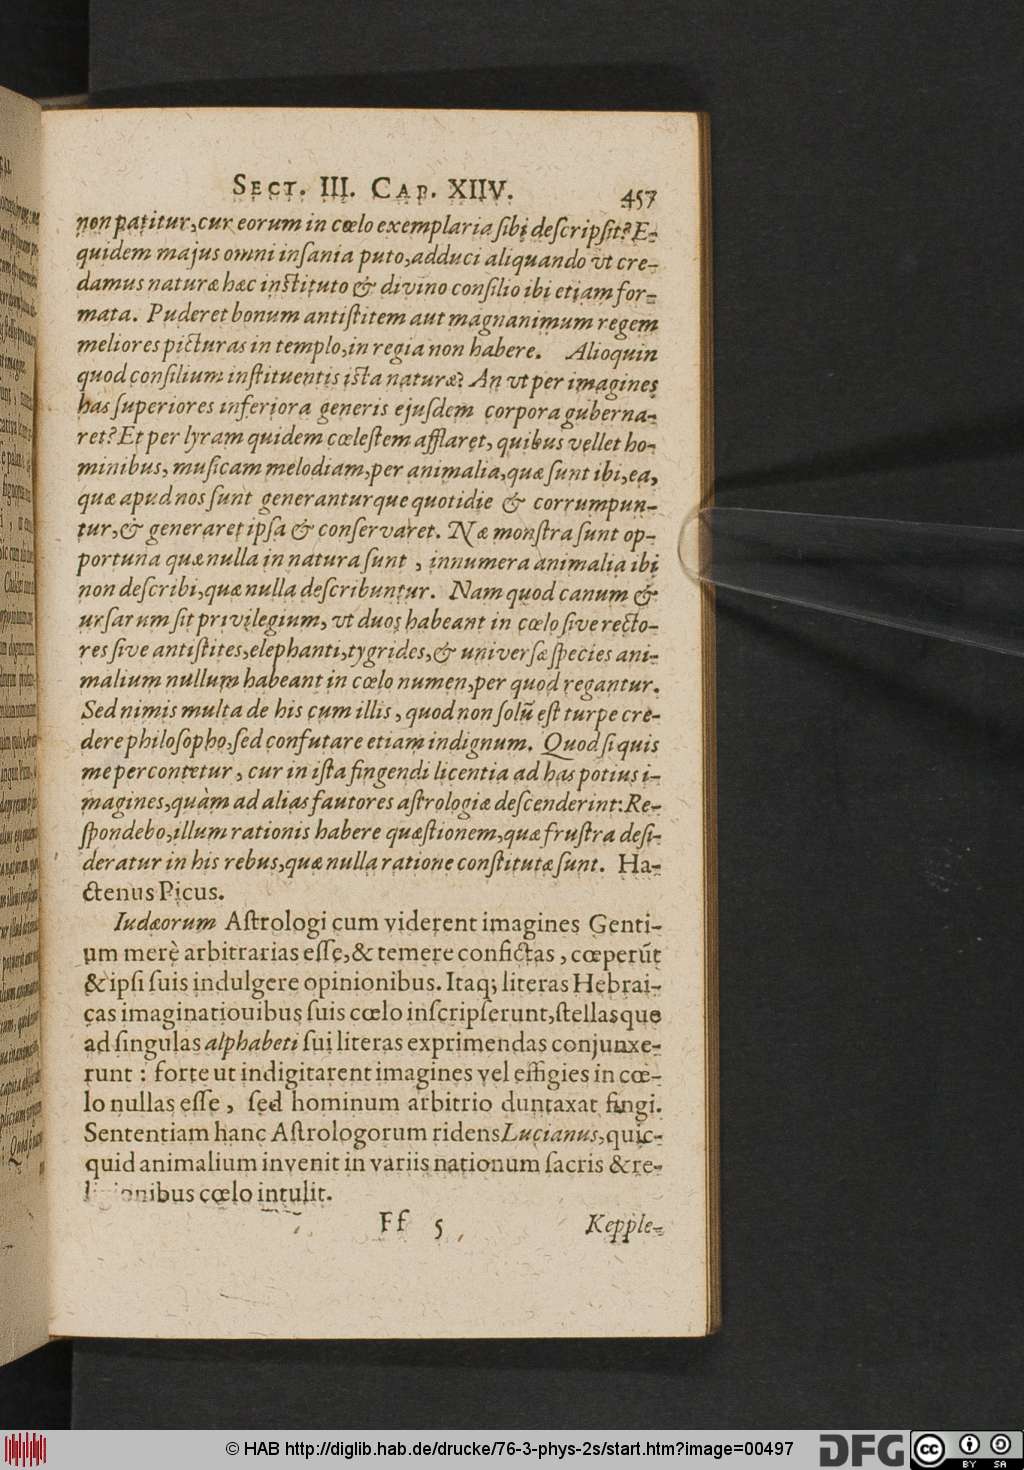 SECT. III. CAP. XIIV. 457
non patitur, cur eorum in cœlo exemplaria sibi descripsit? E-
quidem majus omni insania puto, adduci aliquando vt cre-
damus naturæ hæc instituto & divino consilio ibi etiam for-
mata. Puderet bonum antistitem aut magnanimum regem
meliores picturas in templo, in regia non habere. Alioquin
quod consilium instituentis ista naturæ? An vt per imagines
has superiores inferiora generis ejusdem corpora guberna-
ret? Et per lyram quidem cœlestem afflaret, quibus vellet ho-
minibus, musicam melodiam, per animalia, quæ sunt ibi, ea,
quæ apud nos sunt generanturque quotidie & corrumpun-
tur, & generaret ipsa & conservaret. Næ monstra sunt op-
portuna quæ nulla in natura sunt, innumera animalia ibi
non describi, quæ nulla describuntur. Nam quod canum &
ursarum sit privilegium, vt duos habeant in cœlo sive recto-
res sive antistites, elephanti, tygrides, & universæ species ani-
malium nullum habeant in cœlo numen, per quod regantur.
Sed nimis multa de his cum illis, quod non solũ est turpe cre-
dere philosopho, sed confutare etiam indignum. Quod si quis
me percontetur, cur in ista fingendi licentia ad has potius i-
magines, quàm ad alias fautores astrologiæ descenderint: Re-
spondebo, illum rationis habere quæstionem, quæ frustra desi-
deratur in his rebus, quæ nulla ratione constitutæ sunt. Ha-
ctenus Picus.
Iudæorum Astrologi cum viderent imagines Genti-
um merè arbitrarias esse, & temere confictas, cœperũt
& ipsi suis indulgere opinionibus. Itaq; literas Hebrai-
cas imaginatiouibus suis cœlo inscripserunt, stellasque
ad singulas alphabeti sui literas exprimendas conjunxe-
runt: forte ut indigitarent imagines vel effigies in cœ-
lo nullas esse, sed hominum arbitrio duntaxat fingi.
Sententiam hanc Astrologorum ridens Lucianus, quic-
quid animalium invenit in variis nationum sacris & re-
ligionibus cœlo intulit.
Ff 5 Kepple-
© HAB http://diglib.hab.de/drucke/76-3-phys-2s/start.htm?image=00497 DFG cc BY SA